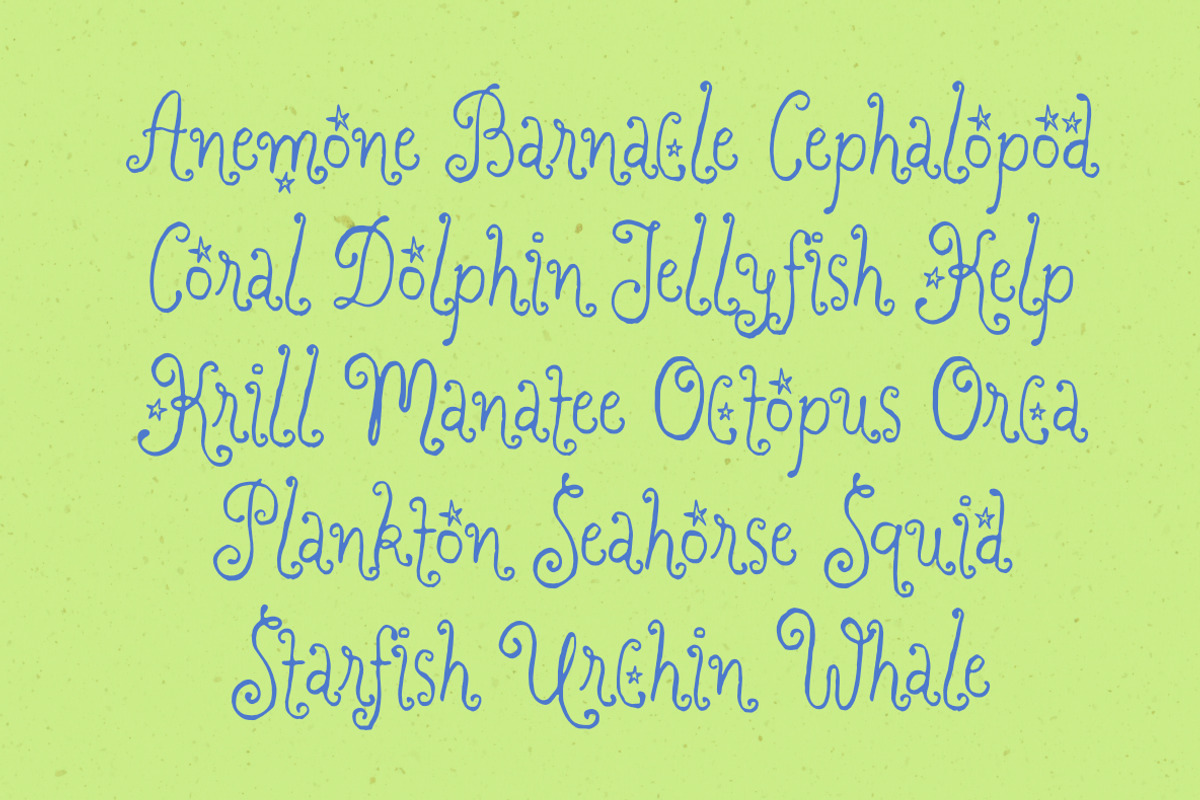 Anemone Barnacle Cephalopod
Coral Dolphin Jellyfish Kelp
Krill Manatee Octopus Orca
Plankton Seahorse Squid
Starfish Urchin Whale